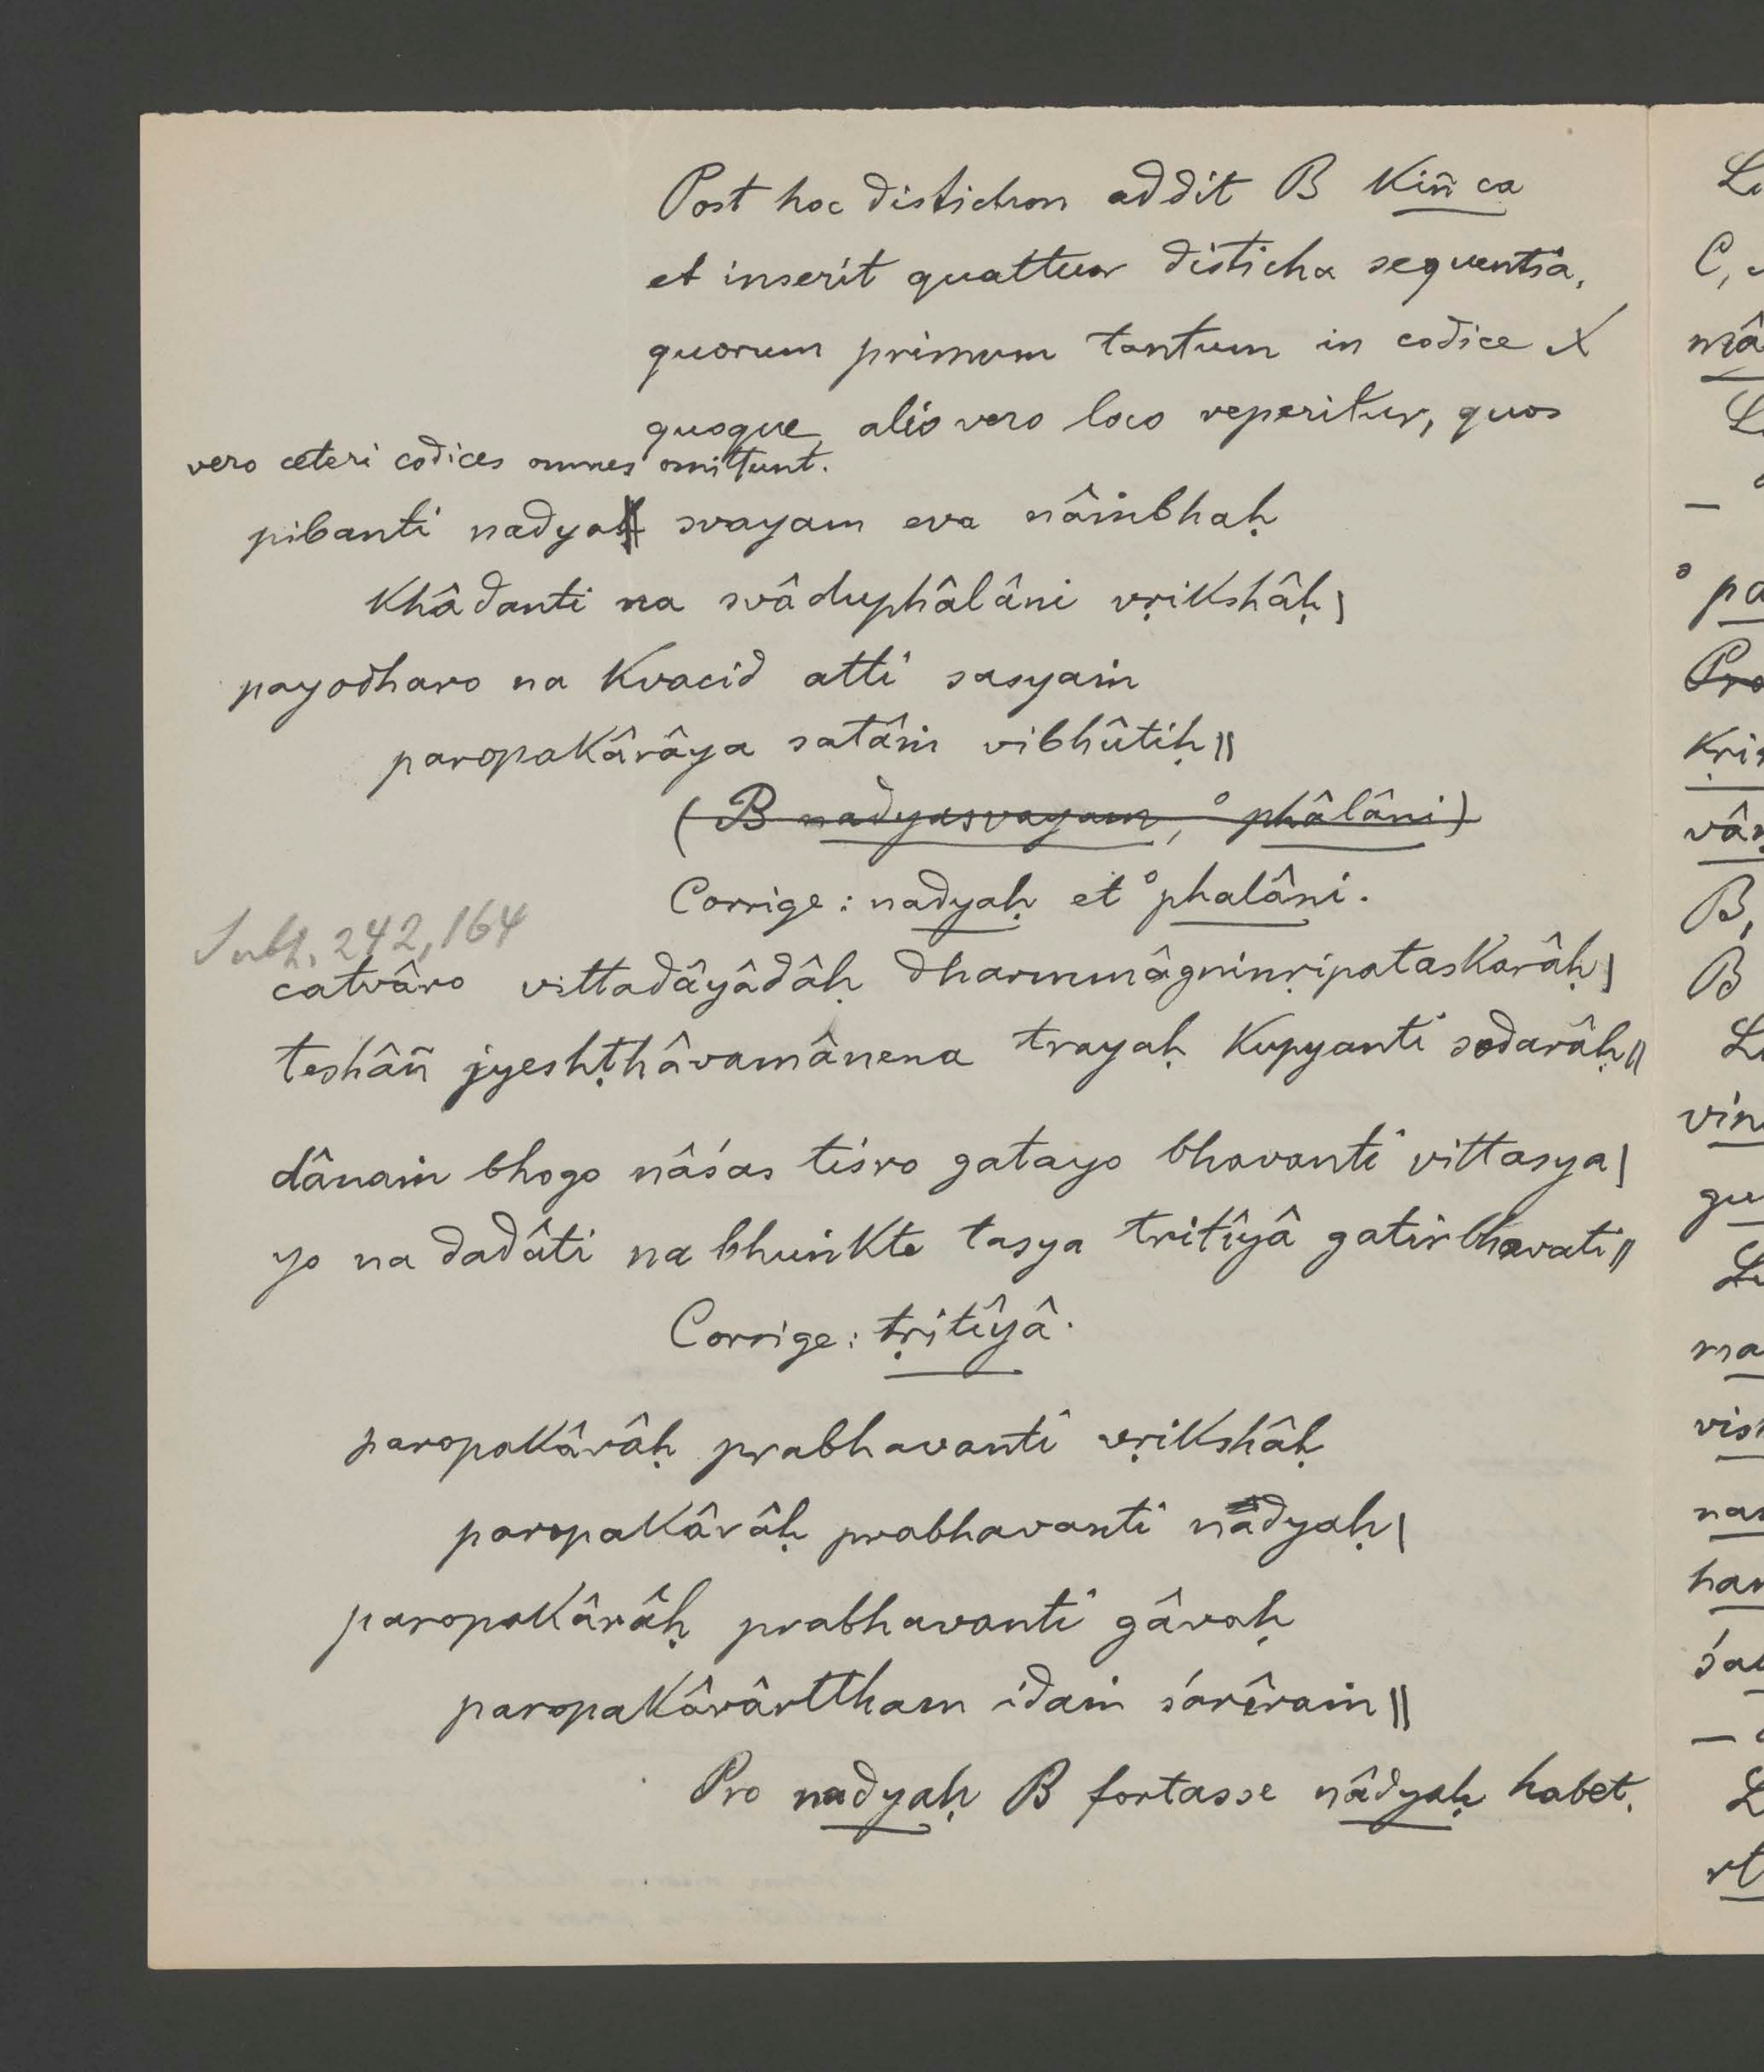 Post hoc distichon addit B kiñ ca
et inserit quattuor disticha sequentia,
quorum primum tantum in codice X
quoque, alio vero loco reperitur, quos
vero ceteri codices omnes omittunt.
pibanti nadya svayam eva nâṁbhaḥ
khâdanti na svâduphâlâni vṛikshâḥ|
payodharo na kvacid atti sasyaṁ
paropakârâya satâṁ vibhûtiḥ||
(B nadyasvayam, °phâlâni)
Corrige: nadyaḥ et °phalâni.
Subh. 242,164
catvâro vittadâyâdâḥ dharmmâgninṛipataskarâḥ|
teshâñ jyeshṭhâvamânena trayaḥ kupyanti sodarâḥ||
dânaṁ bhogo nâśas tiśro gatayo bhavanti vittasya|
yo na dadâti na bhuṅkte tasya tritîyâ gatir bhavati||
Corrige: tṛitîyâ.
paropakârâḥ prabhavanti vṛikshâḥ
paropakârâḥ prabhavanti nadyaḥ|
paropakârâḥ prabhavanti gâvaḥ
paropakârârttham idaṁ śarîraṁ||
Pro nadyaḥ B fortasse nâdyaḥ habet.
C,
mâ
°pa
Pro
kṛi
B,
B
vin
gu
ma
vis
nas
han
śa
rt